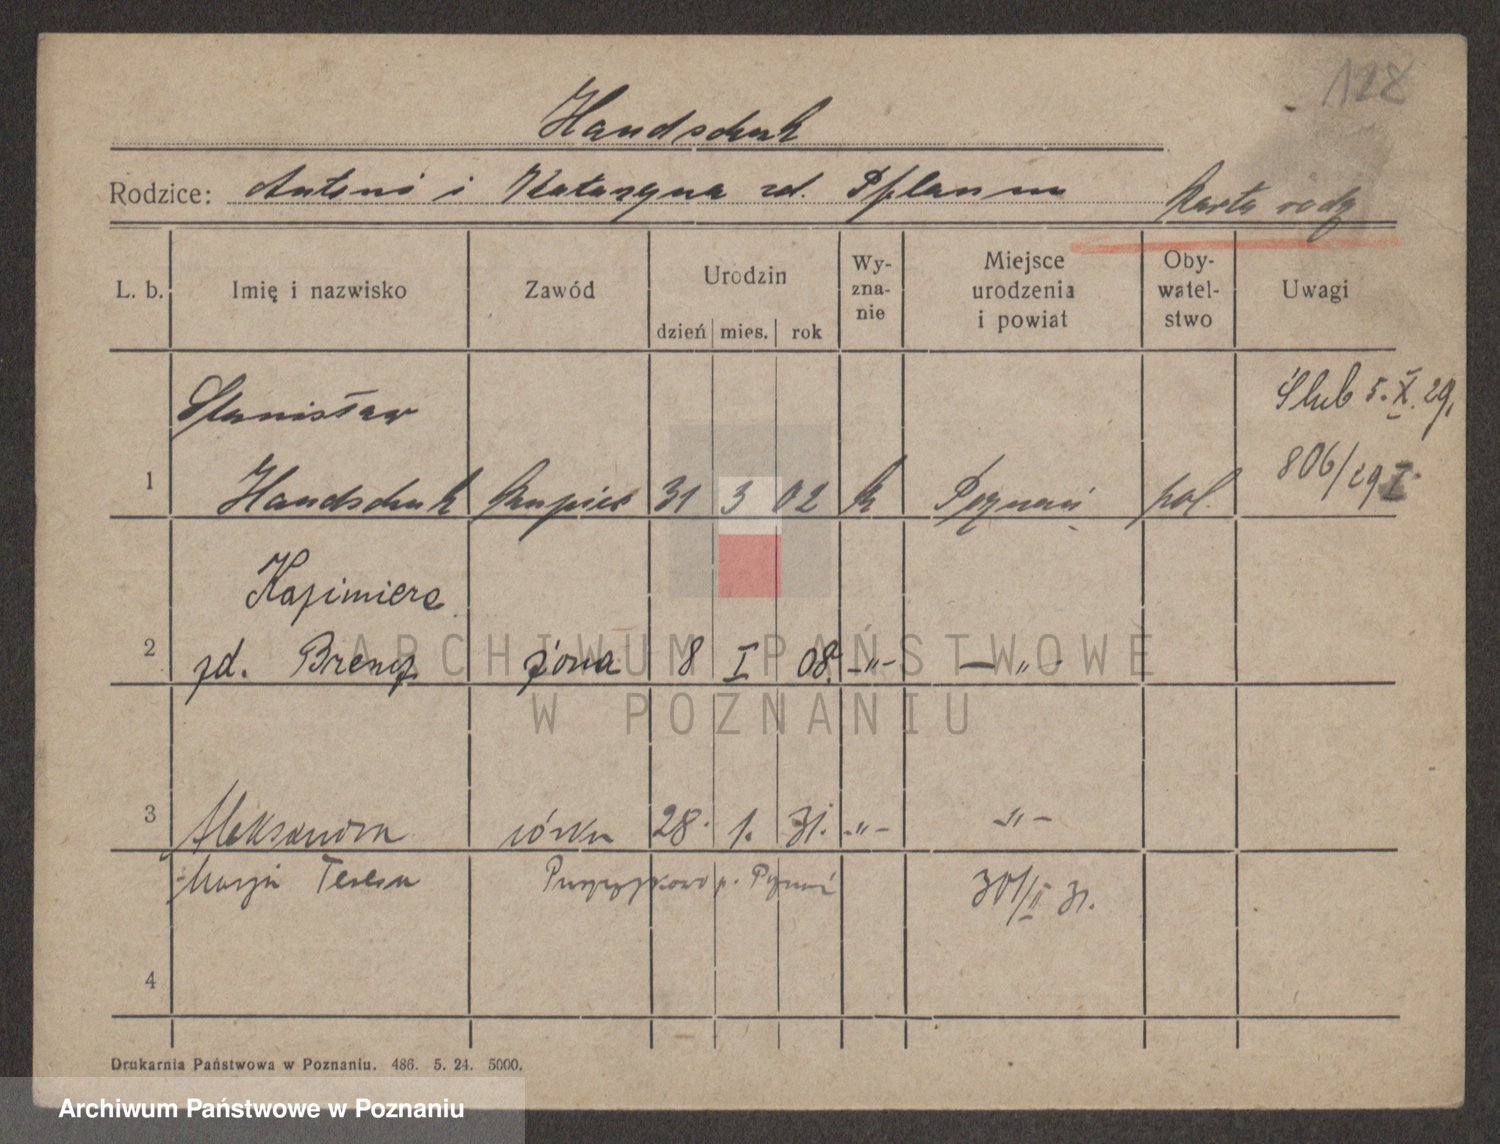 128
Handschuk
Rodzice: Antoni i Katarzyna zd. Pflaum
Karta rodz
L. b. Imię i nazwisko Zawód Urodzin dzień mies. rok Wy-zna-nie Miejsce urodzenia i powiat Oby-watel-stwo Uwagi
Stanisław Ślub 5. X. 29.
1 Handschuk kupiec 31 3 02 k Poznań pol. 806/29 I
Kazimiera
2 zd. Brenz żona 8 I 08. -"- -"-
3 Aleksandra córka 28. 1. 31. -"- -"-
Marja Teresa p. Poznań 301/II 31.
4
Drukarnia Państwowa w Poznaniu. 486. 5. 24. 5000.
ARCHIWUM PAŃSTWOWE
W POZNANIU
Archiwum Państwowe w Poznaniu